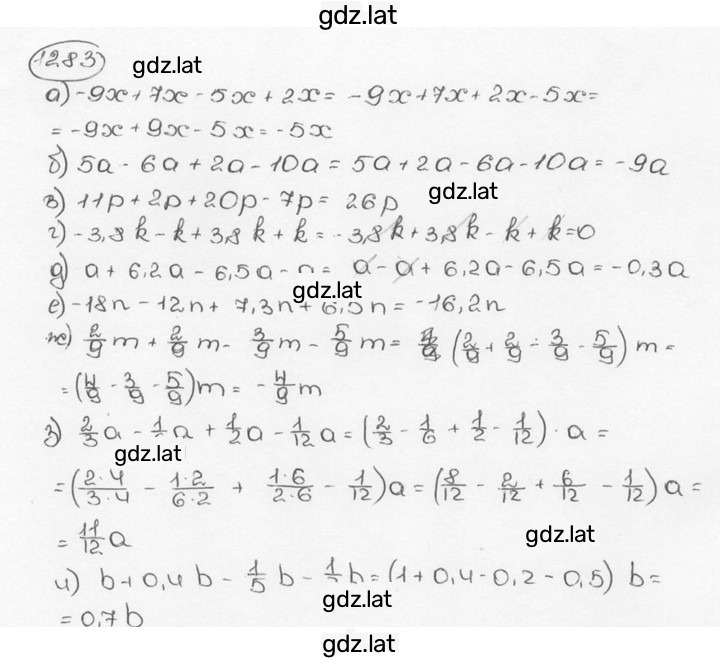 gdz.lat
1283
gdz.lat
а) -9x + 7x - 5x + 2x = -9x + 7x + 2x - 5x =
= -9x + 9x - 5x = -5x
б) 5a - 6a + 2a - 10a = 5a + 2a - 6a - 10a = -9a
gdz.lat
в) 11p + 2p + 20p - 7p = 26p
г) -3,8k - k + 3,8k + k = -3,8k + 3,8k - k + k = 0
д) a + 6,2a - 6,5a - a = a - a + 6,2a - 6,5a = -0,3a
gdz.lat
е) -18n - 12n + 7,3n + 6,5n = -16,2n
ж) 2/9 m + 2/9 m - 3/9 m - 5/9 m = (2/9 + 2/9 - 3/9 - 5/9) m =
= (4/9 - 3/9 - 5/9) m = -4/9 m
з) 2/3 a - 1/ a + 1/2 a - 1/12 a = (2/3 - 1/6 + 1/2 - 1/12) · a =
gdz.lat
= (2·4/3·4 - 1·2/6·2 + 1·6/2·6 - 1/12) a = (8/12 - 2/12 + 6/12 - 1/12) a =
= 11/12 a
gdz.lat
и) b + 0,4b - 1/5 b - 1/ b = (1 + 0,4 - 0,2 - 0,5) b =
gdz.lat
= 0,7b
gdz.lat